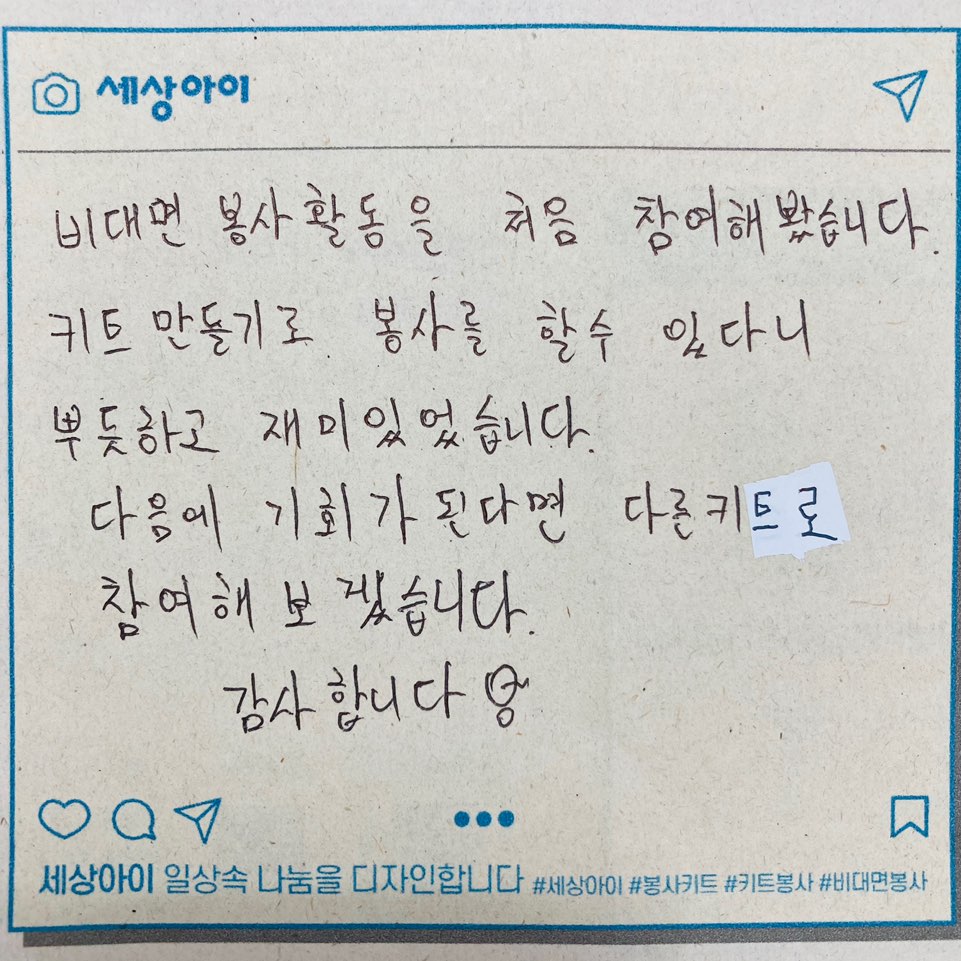 세상아이
비대면 봉사활동을 처음 참여해봤습니다.
키트 만들기로 봉사를 할수 있다니
뿌듯하고 재미있었습니다.
다음에 기회가 된다면 다른키트로
참여해 보겠습니다.
감사합니다
세상아이 일상속 나눔을 디자인합니다 #세상아이 #봉사키트 #키트봉사 #비대면봉사